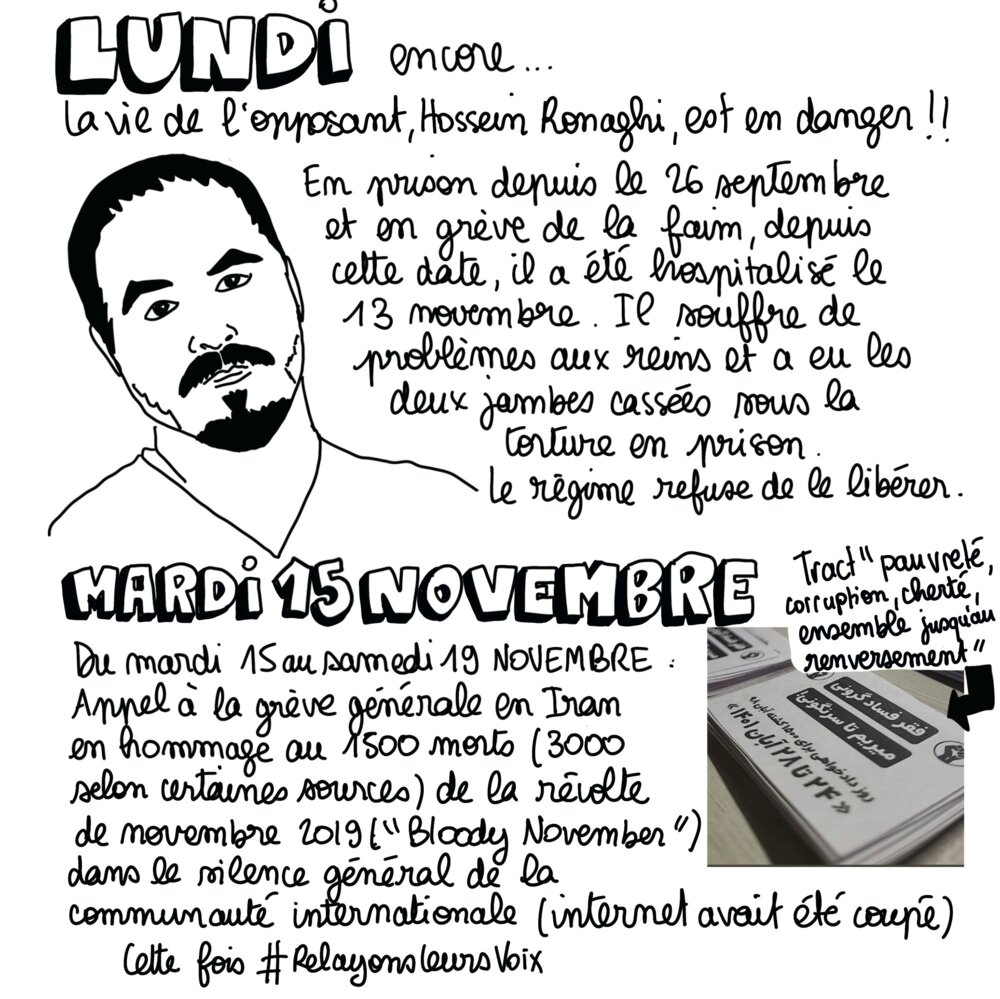 LUNDI encore...
La vie de l'opposant, Hossein Ronaghi, est en danger !!
En prison depuis le 26 septembre
et en grève de la faim, depuis
cette date, il a été hospitalisé le
13 novembre. Il souffre de
problèmes aux reins et a eu les
deux jambes cassées sous la
torture en prison.
Le régime refuse de le libérer.
MARDI 15 NOVEMBRE
Tract " pauvreté,
corruption, cherté,
ensemble jusqu'au
renversement "
فقر فساد گرونی
میریم تا سرنگونی!
روز دادخواهی برای ۱۵۰۰ کشته آبان ۹۸
« ۲۴ تا ۲۸ آبان ۱۴۰۱ »
Du mardi 15 au samedi 19 NOVEMBRE :
Appel à la grève générale en Iran
en hommage au 1500 morts (3000
selon certaines sources) de la révolte
de novembre 2019 ("Bloody November")
dans le silence général de la
communauté internationale (internet avait été coupé)
Cette fois #RelayonsLeursVoix